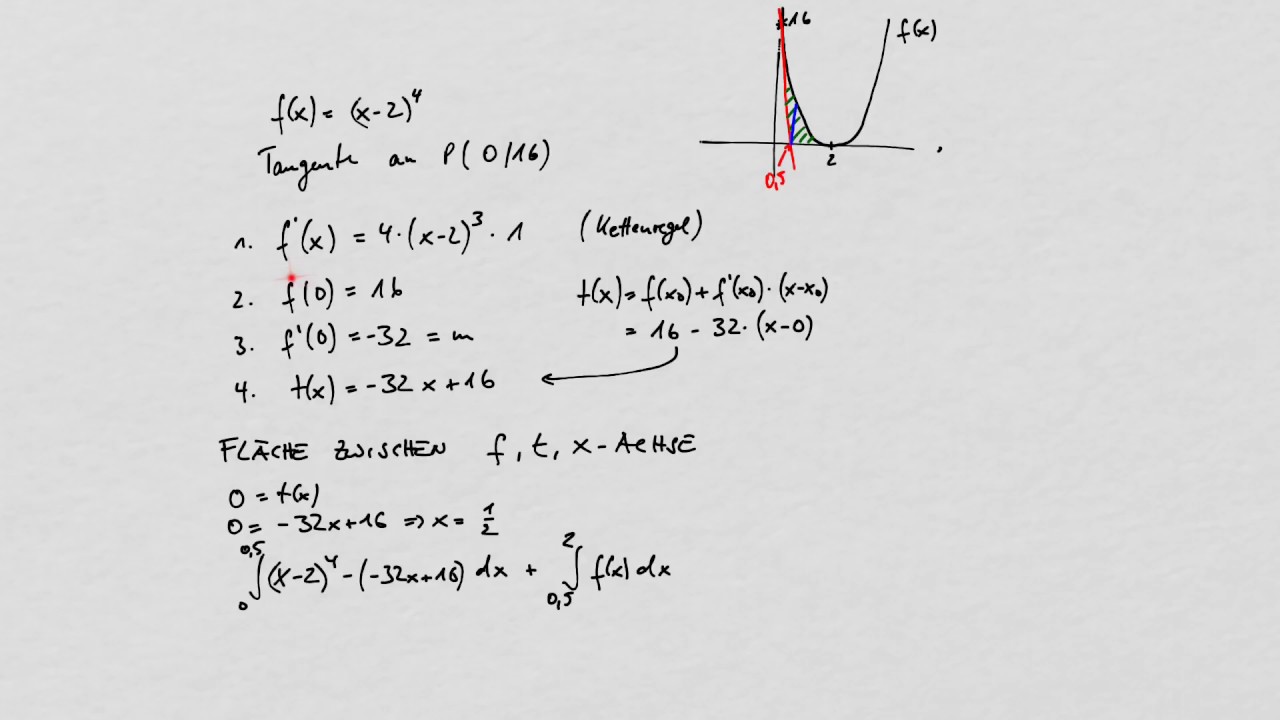 16
f(x)
0,5
2
f(x) = (x-2)^4
Tangente an P(0/16)
1. f'(x) = 4·(x-2)^3·1 (Kettenregel)
2. f(0) = 16
t(x) = f(x₀) + f'(x₀)·(x-x₀)
= 16 - 32·(x-0)
3. f'(0) = -32 = m
4. t(x) = -32x + 16
FLÄCHE ZWISCHEN f, t, x-ACHSE
0 = t(x)
0 = -32x+16 ⇒ x = 1/2
∫₀^0,5 (x-2)^4 - (-32x+16) dx + ∫_0,5^2 f(x) dx